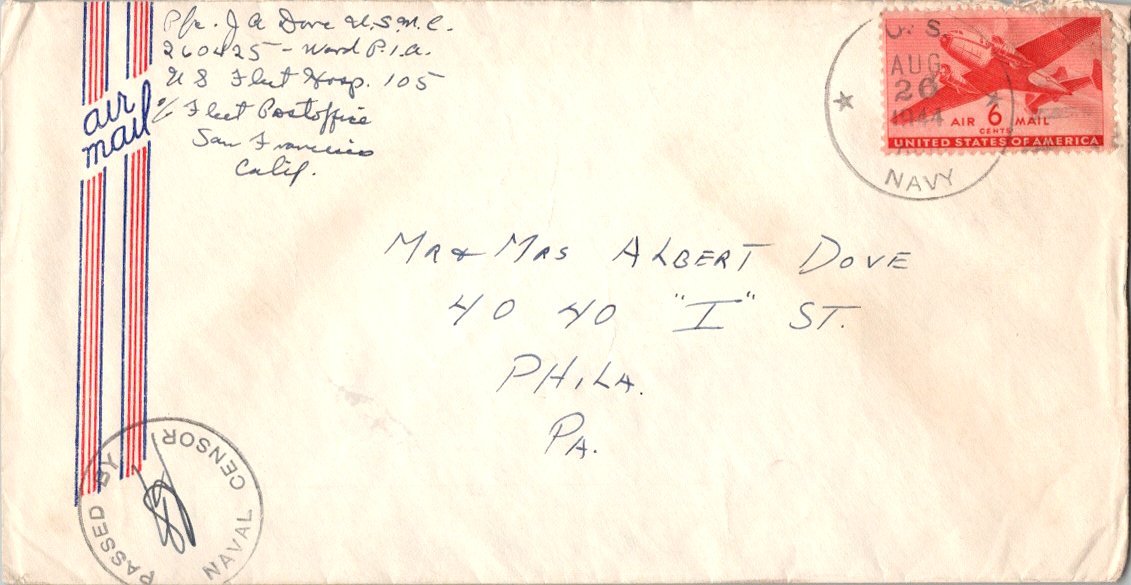 Pfc. J A Dove U.S.M.C.
260425 - Ward P.1.a.
U S Fleet Hosp. 105
℅ Fleet Postoffice
San Francisco
Calif.
air
mail
U. S.
AUG
26
1944
NAVY
AIR 6 MAIL
CENTS
UNITED STATES OF AMERICA
Mr & Mrs ALBERT DOVE
40 40 "I" ST.
PHILA.
PA.
PASSED BY
NAVAL CENSOR